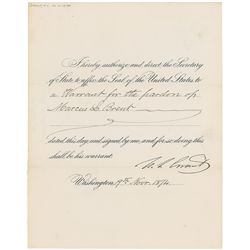 I hereby authorize and direct the Secretary
of State to affix the Seal of the United States to
a Warrant for the pardon of
Marcus L. Brent
dated this day, and signed by me, and for so doing this
shall be his warrant.
U. S. Grant
Washington, 9th Nov. 1874.